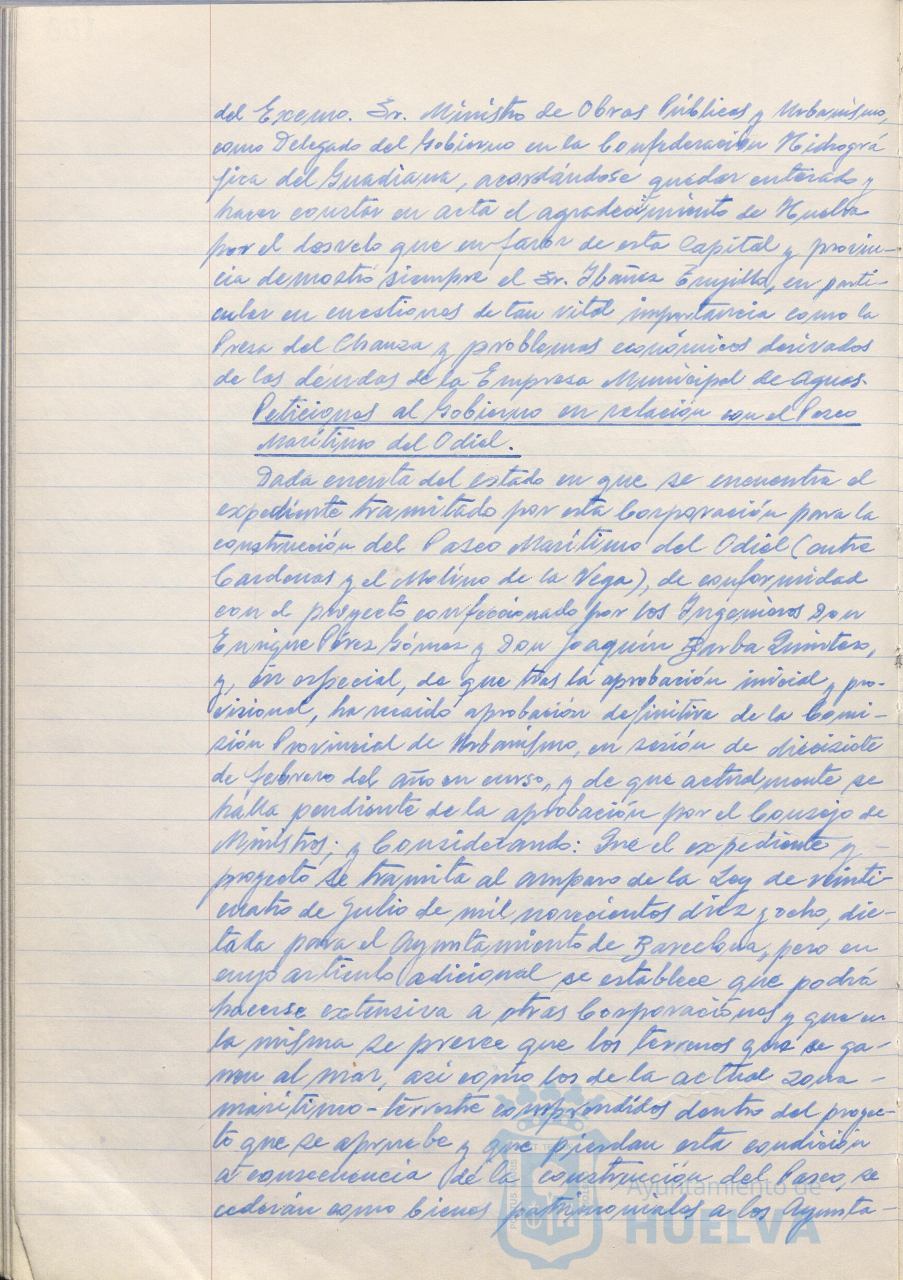 del Excmo. Sr. Ministro de Obras Públicas y Urbanismo,
como Delegado del Gobierno en la Confederación Hidrográ
fica del Guadiana, acordándose quedar enterado y
hacer constar en acta el agradecimiento de Huelva
por el desvelo que en favor de esta Capital y provin-
cia demostró siempre el Sr. Ibáñez Trujillo, en parti-
cular en cuestiones de tan vital importancia como la
Presa del Chanza y problemas económicos derivados
de las deudas de la Empresa Municipal de Aguas.
Peticiones al Gobierno en relación con el Paseo
Marítimo del Odiel.
Dada cuenta del estado en que se encuentra el
expediente tramitado por esta Corporación para la
construcción del Paseo Marítimo del Odiel (entre
Cardenas y el Molino de la Vega), de conformidad
con el proyecto confeccionado por los Ingenieros Don
Enrique Pérez Gómez y Don Joaquín Barba Quintero,
y, en especial, de que tras la aprobación inicial y pro-
visional, ha recaido aprobación definitiva de la Comi-
sión Provincial de Urbanismo, en sesión de diecisiete
de febrero del año en curso, y de que actualmente se
halla pendiente de la aprobación por el Consejo de
Ministros; y Considerando: Que el expediente y -
proyecto se tramita al amparo de la Ley de veinti-
cuatro de Julio de mil novecientos diez y ocho, dic-
tada para el Ayuntamiento de Barcelona, pero en
cuyo artículo adicional se establece que podrá
hacerse extensiva a otras Corporaciones y que en
la misma se prevee que los terrenos que se ga-
nen al mar, así como los de la actual zona -
marítimo-terrestre comprendidos dentro del proyec-
to que se apruebe y que pierdan esta condición
a consecuencia de la construcción del Paseo, se
cederán como bienes patrimoniales a los Ayunta-
Ayuntamiento de
HUELVA